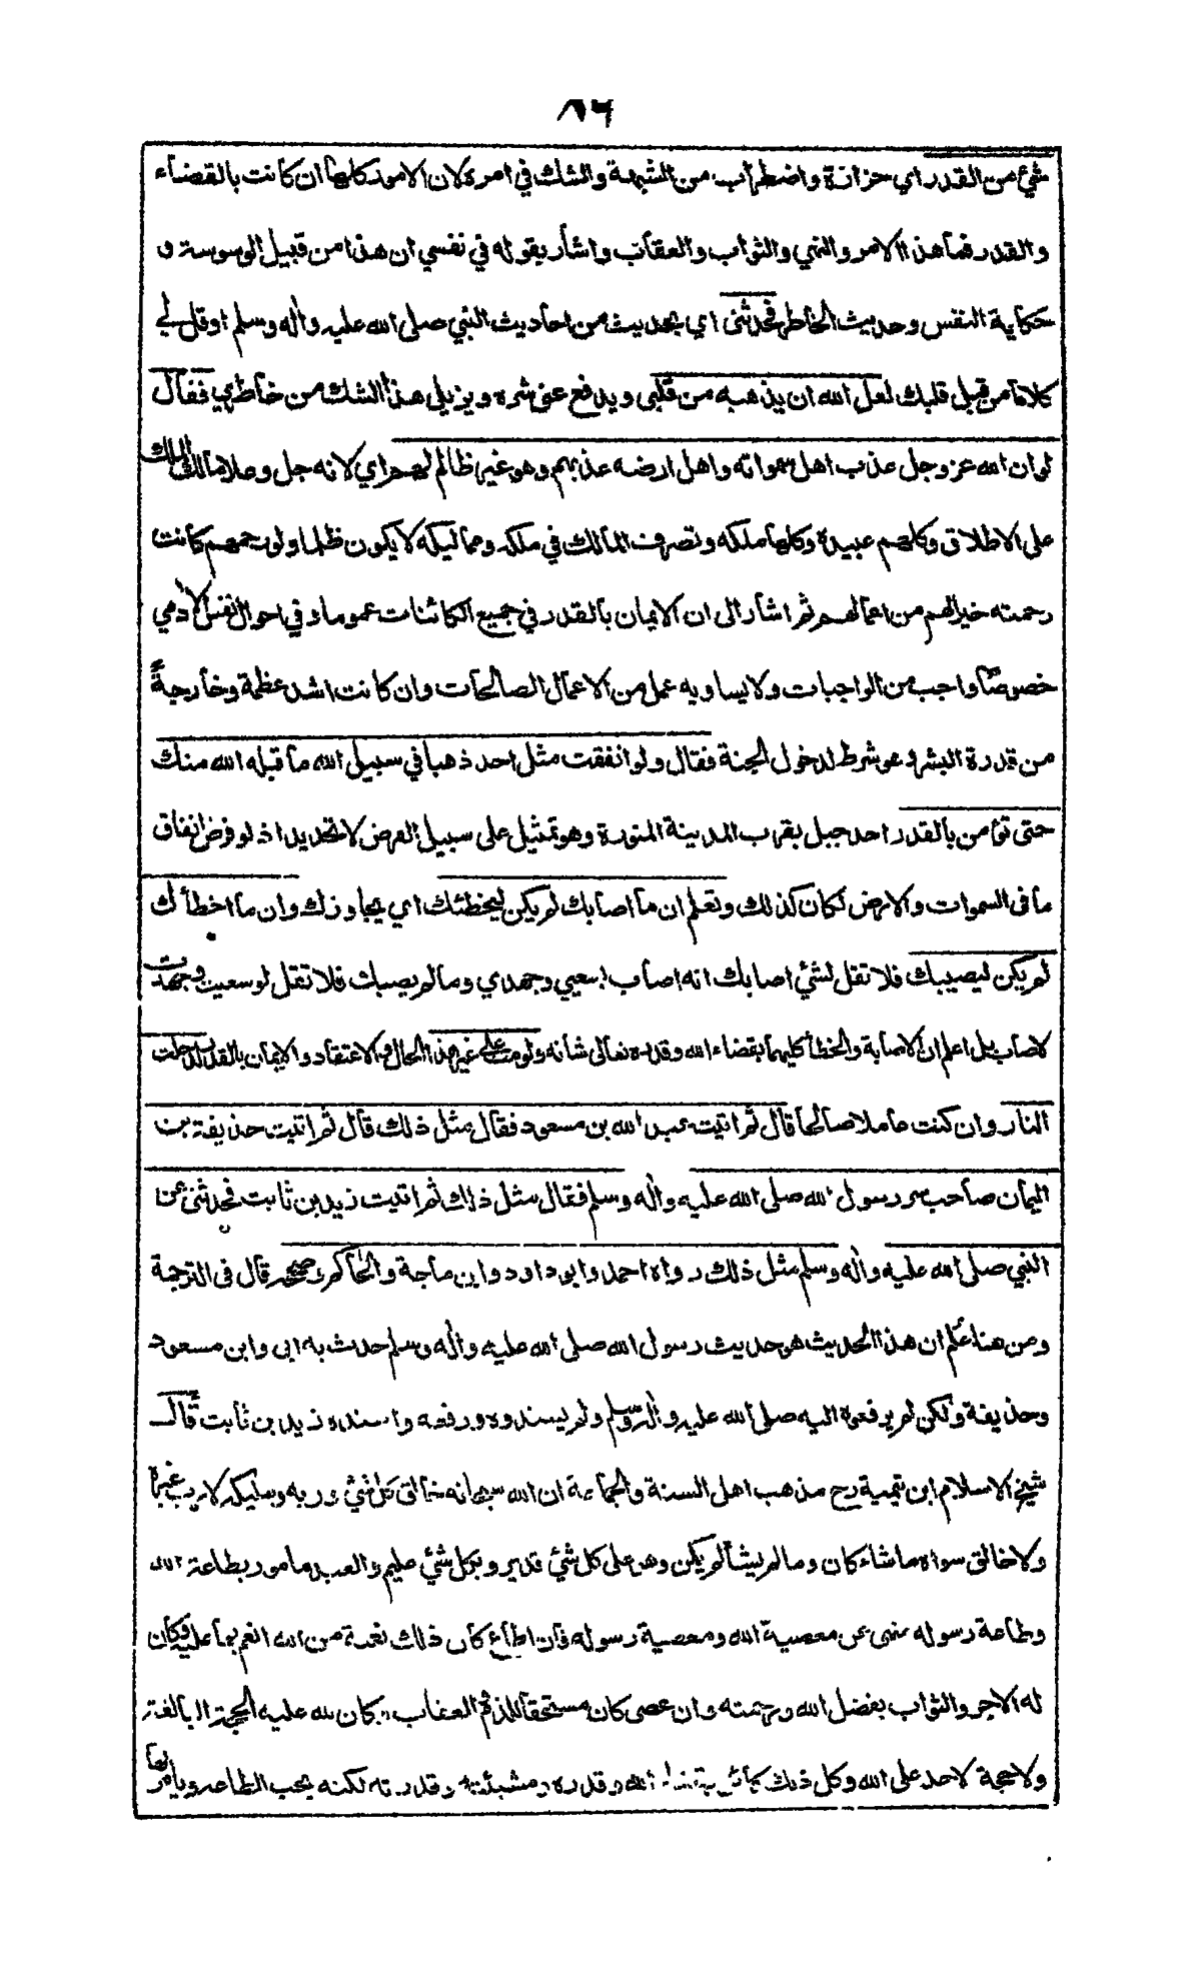 ٨٦
شيء من القدر اي حزازة واضطراب من الشبهة والشك في امره لان الامور كلها ان كانت بالقضاء
والقدر فما هذا الامر والنهي والثواب والعقاب واشار بقوله في نفسي ان هذا من قبيل الوسوسة و
حكاية النفس وحديث الخاطر فحدثني اي بحديث من احاديث النبي صلى الله عليه واله وسلم او قل لي
كلاما من قبل قلبك لعل الله ان يذهبه من قلبي ويدفع عني شره ويزيل هذا الشك من خاطري فقال
لو ان الله عز وجل عذب اهل سمواته واهل ارضه عذبهم وهو غير ظالم لهم اي لانه جل وعلا مالك الملك
على الاطلاق وكلهم عبيده وكلها ملكه وتصرف المالك في ملكه ومماليكه لا يكون ظلما ولو رحمهم كانت
رحمته خيرا لهم من اعمالهم ثم اشار الى ان الايمان بالقدر في جميع الكائنات عموما وفي احوال النفس الادمي
خصوصا واجب من الواجبات ولا يساويه عمل من الاعمال الصالحات وان كانت اشد عظمة وخارجة
من قدرة البشر وهو شرط لدخول الجنة فقال ولو انفقت مثل احد ذهبا في سبيل الله ما قبله الله منك
حتى تؤمن بالقدر احد جبل بقرب المدينة المنورة وهو تمثيل على سبيل الفرض لا تحديد اذ لو فرض انفاق
ما في السموات والارض لكان كذلك وتعلم ان ما اصابك لم يكن ليخطئك اي يجاوزك وان ما اخطأك
لم يكن ليصيبك فلا تقل لشئ اصابك انه اصاب بسعيي وجهدي وما لم يصبك فلا تقل لو سعيت وجهدت
لاصاب بل اعلم ان الاصابة والخطأ كليهما بقضاء الله وقدره تعالى شانه ولو مت على غير هذا الحال والاعتقاد والايمان بالقدر لدخلت
النار وان كنت عاملا صالحا قال ثم اتيت عبد الله بن مسعود فقال مثل ذلك قال ثم اتيت حذيفة بن
اليمان صاحب سر رسول الله صلى الله عليه واله وسلم فقال مثل ذلك ثم اتيت زيد بن ثابت فحدثني عن
النبي صلى الله عليه واله وسلم مثل ذلك رواه احمد وابو داود وابن ماجة والحاكم وصححه قال في الترجمة
ومن هنا علم ان هذا الحديث هو حديث رسول الله صلى الله عليه واله وسلم حدث به ابي وابن مسعود
وحذيفة ولكن لم يرفعوه اليه صلى الله عليه واله وسلم ولم يسندوه ورفعه واسنده زيد بن ثابت قال
شيخ الاسلام ابن تيمية رح مذهب اهل السنة والجماعة ان الله سبحانه خالق كل شئ وربه ومليكه لا رب غيره
ولا خالق سواه ما شاء كان وما لم يشأ لم يكن وهو على كل شئ قدير وبكل شئ عليم والعبد مامور بطاعة الله
وطاعة رسوله منهي عن معصية الله ومعصية رسوله فان اطاع كان ذلك نعمة من الله انعم بها عليه وكان
له الاجر والثواب بفضل الله ورحمته وان عصى كان مستحقا للذم العقاب وكان لله عليه الحجة البالغة
ولا حجة لاحد على الله وكل ذلك كائن بقضاء الله وقدره ومشيئته وقدرته لكنه يحب الطاعة ويأمر بها